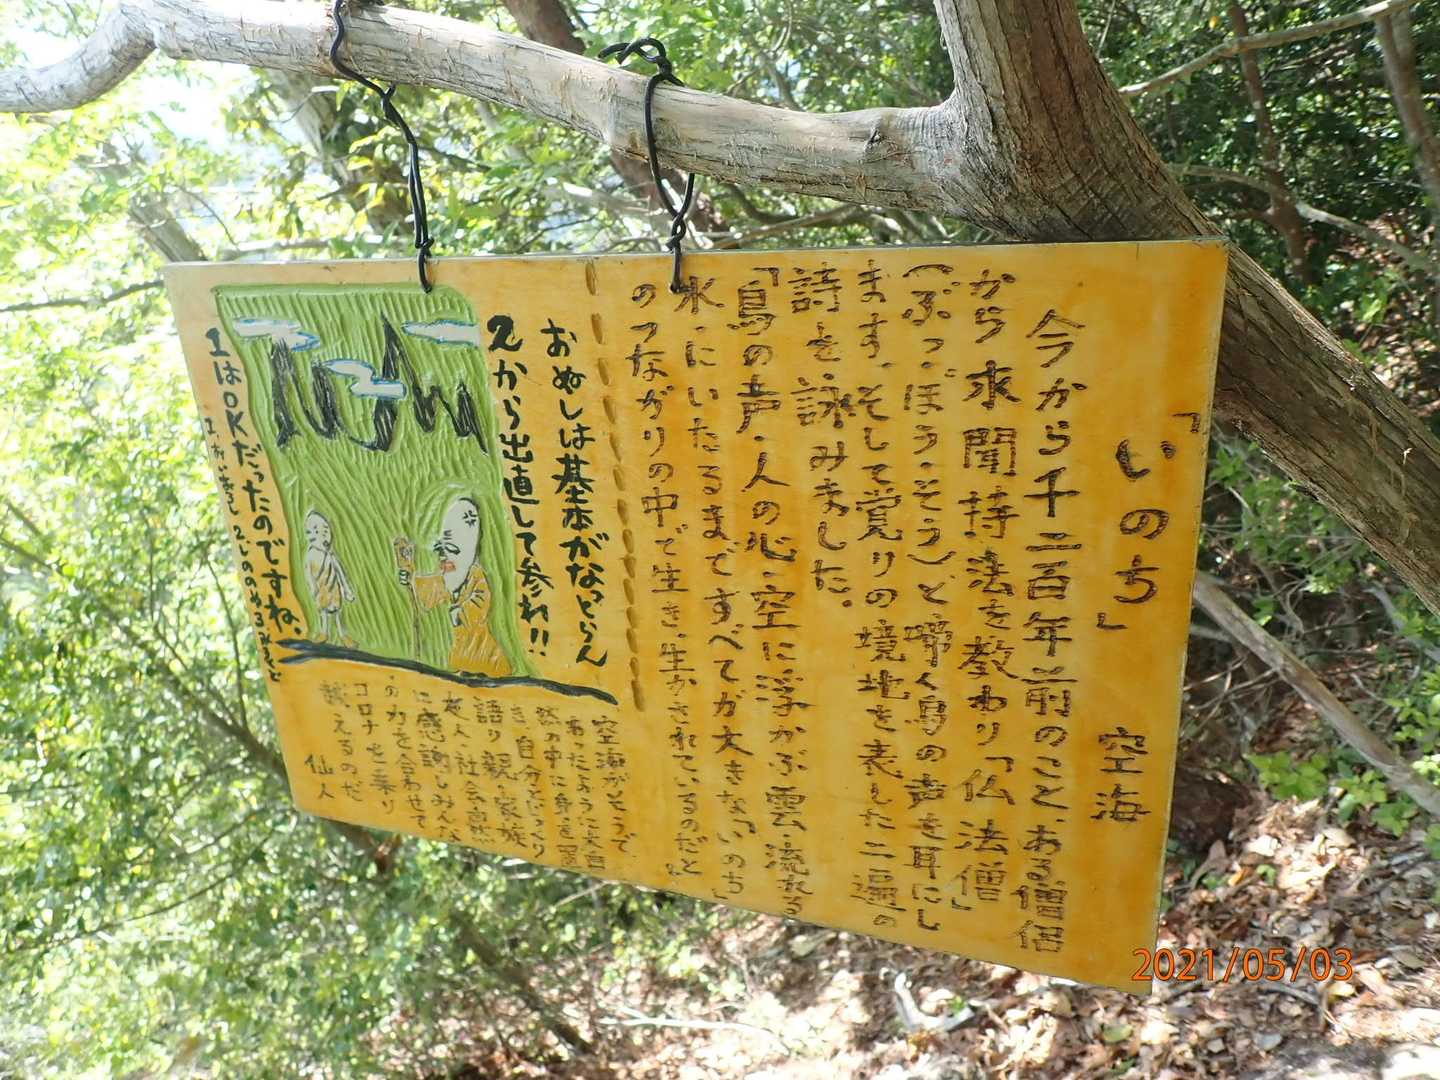 「いのち」 空海
今から千二百年前のこと、ある僧侶
から求聞持法を教わり「仏法僧」
(ぶっ・ぽう・そう)と啼く鳥の声を耳にし
ます。そして覚りの境地を表した二遍の
詩を詠みました。
「鳥の声・人の心・空に浮かぶ雲・流れる
水にいたるまですべてが大きな「いのち」
のつながりの中で生き、生かされているのだと
おぬしは基本がなっとらん
2から出直して参れ!!
1はOKだったのですね、
空海がそうで
あったように大自
然の中に身を置
き、自分とじっくり
語り親・家族
友人・社会・自然
に感謝しみんな
の力を合わせて
コロナを乗り
越えるのだ
仙人
2021/05/03